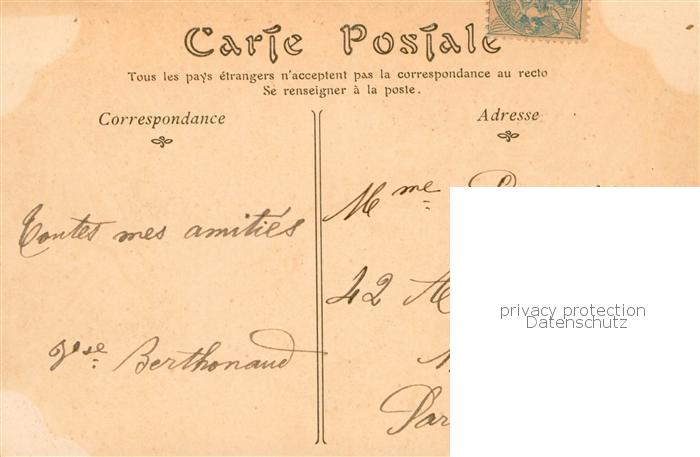 Carte Postale
Tous les pays étrangers n'acceptent pas la correspondance au recto
Se renseigner à la poste.
Correspondance
Adresse
Toutes mes amitiés
Vse Berthonaud
Mme
42
privacy protection
Datenschutz